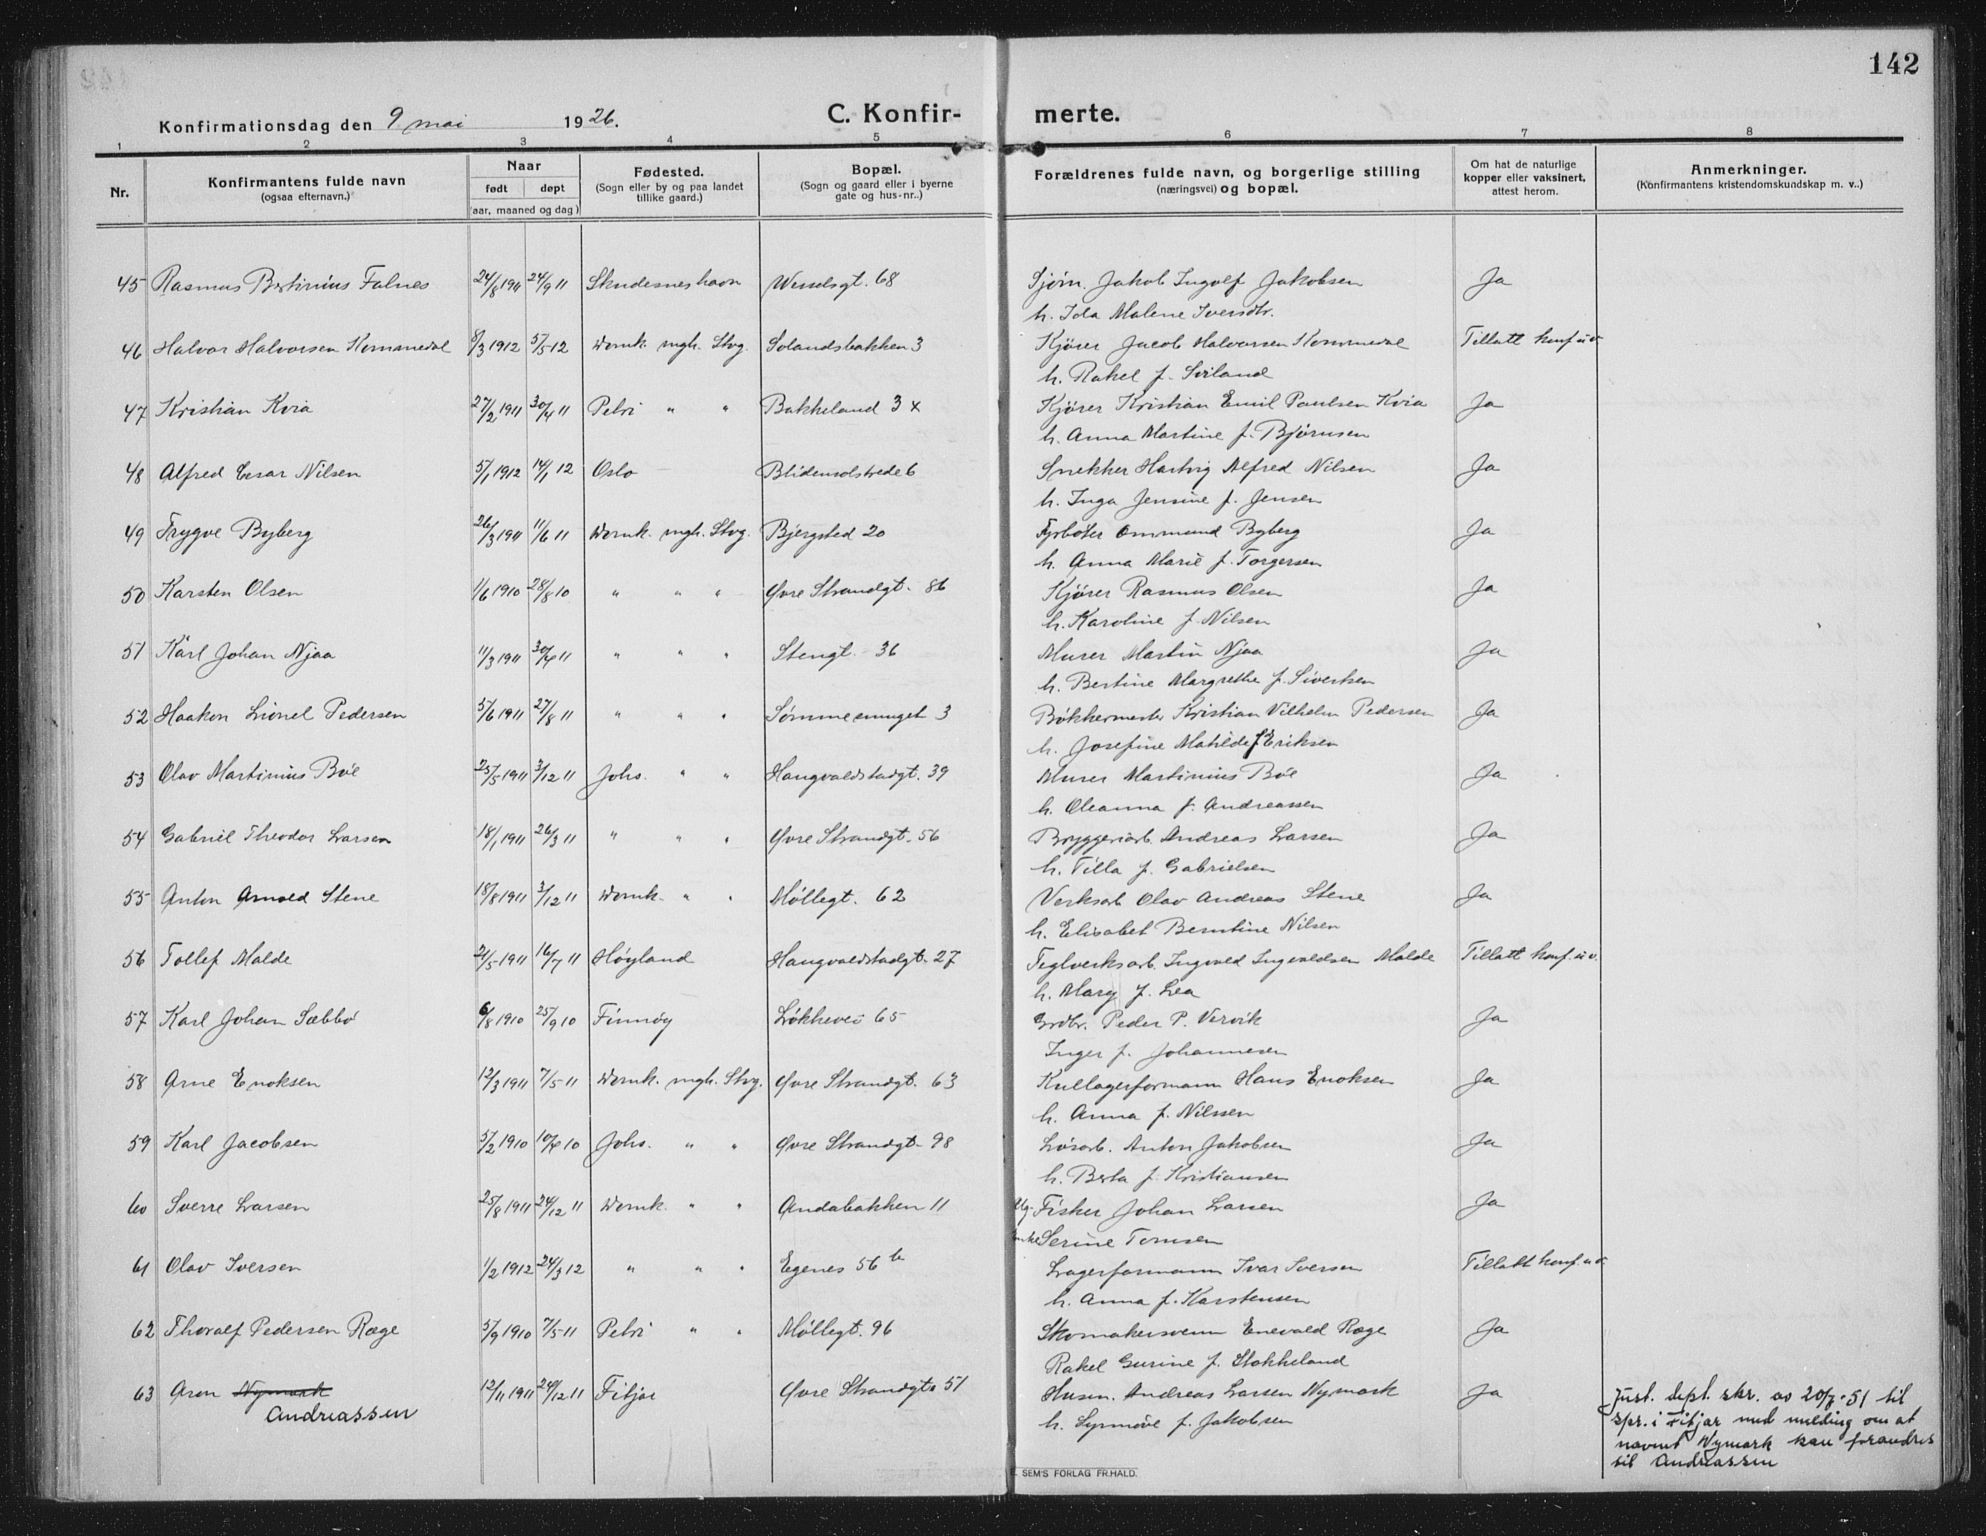 142
Konfirmationsdag den 9 mai 1926. C. Konfirmerte.
1 2 3 4 5 6 7 8
Nr. Konfirmantens fulde navn (ogsaa efternavn.) Naar født døpt (aar, maaned og dag) Fødested. (Sogn eller by og paa landet tillike gaard.) Bopæl. (Sogn og gaard eller i byerne gate og hus-nr..) Forældrenes fulde navn, og borgerlige stilling (næringsvei) og bopæl. Om hat de naturlige kopper eller vaksinert, attest herom. Anmerkninger. (Konfirmantens kristendomskundskap m. v..)
45 Rasmus Bertinius Falnes 24/8 1911 24/9 11 Skudesneshavn Wesselsgt. 68 Sjøm. Jakob Ingolf Jakobsen Ja
h. Ida Malene Iversdtr.
46 Halvor Halvorsen Kommedal 8/3 1912 5/5 12 Domk. mgh. Stvg. Solandsbakken 3 Kjører Jacob Halvorsen Kommedal Tillatt konf. u.v.
h. Rakel f. Sviland
47 Kristian Kvia 27/2 1911 30/4 11 Petri " " Bakkeland 34 Kjører Kristian Emil Paulsen Kvia Ja
h. Anna Martine f. Bjørnsen
48 Alfred Cesar Nilsen 5/1 1912 14/1 12 Oslo Blidensolstrede 6 Snekker Hartvig Alfred Nilsen Ja
h. Inga Jensine f. Jensen
49 Trygve Byberg 26/3 1911 11/6 11 Domk. mgh. Stvg. Bjergsted 20 Fyrbøter Ommund Byberg Ja
h. Anna Marie f. Torgersen
50 Karsten Olsen 1/6 1910 28/8 10 " " " Øvre Strandgt. 86 Kjører Rasmus Olsen Ja
h. Karoline f. Nilsen
51 Karl Johan Njaa 11/3 1911 30/4 11 " " " Stengt. 36 Murer Martin Njaa Ja
h. Bertine Margrethe f. Sivertsen
52 Haakon Lionel Pedersen 5/6 1911 27/8 11 " " " Sømmesmuget 3 Bøkkermester Kristian Vilhelm Pedersen Ja
h. Josefine Matilde f. Eriksen
53 Olav Martinius Bøe 25/5 1911 3/12 11 Johs. " " Haugvaldstadgt. 39 Murer Martinius Bøe Ja
h. Oleanna f. Andreassen
54 Gabriel Theodor Larsen 18/1 1911 26/3 11 " " " Øvre Strandgt. 56 Bryggeriarb. Andreas Larsen Ja
h. Tilla f. Gabrielsen
55 Anton Arnold Stene 18/8 1911 3/12 11 Domk. " " Møllegt. 62 Verksarb Olav Andreas Stene Ja
h. Elisabet Berntine Nilsen
56 Tollef Malde 21/5 1911 16/7 11 Høyland Haugvaldstadgt. 27 Teglverksarb. Ingvald Ingvaldsen Malde Tillatt konf. u.v.
h. Mary f. Lea
57 Karl Johan Sæbbø 6/8 1910 25/9 10 Finnøy Løkkevei 65 Grdbr. Peder P. Vervik Ja
Inger f. Johannesen
58 Arne Enoksen 12/3 1911 7/5 11 Domk. mgh. Stvg. Øvre Strandgt. 63 Kullagerformann Hans Enoksen Ja
h. Anna f. Nilssen
59 Karl Jacobsen 5/2 1910 10/4 10 Johs. " " Øvre Strandgt. 98 Løsarb. Anton Jakobsen Ja
h. Berta f. Kristiansen
60 Sverre Larsen 25/8 1911 24/12 11 Domk. " " Andabakken 11 Fisker Johan Larsen Ja
Enke Serine Tomsen
61 Olav Iversen 1/2 1912 24/3 12 " " " Egenes 56 b Lagerformann Ivar Iversen Tillatt konf. u.v.
h. Anna f. Karstensen
62 Thoralf Pedersen Ræge 5/9 1910 7/5 11 Petri " " Møllegt. 96 Skomakersvenn Enevald Ræge Ja
Rakel Gurine f. Stokkeland
63 Aron Nymark 12/11 1911 24/12 11 Fitjar Øvre Strandgt. 51 Husm. Andreas Larsen Nymark Ja Just. dept. skr. av 20/7-51 til
Andreassen h. Synnøve f. Jakobsen spr. i Fitjar med melding om at
navnet Nymark kan forandres
til Andreassen
E. SEM'S FORLAG FR.HALD.